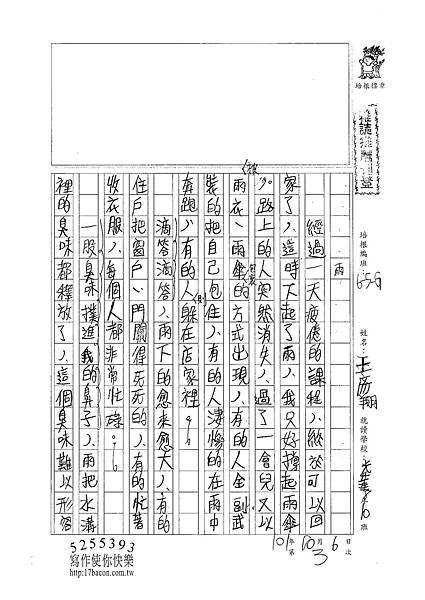 培根標章
培根編班：G56
姓名：王
就讀學校
班
雨
經過一天疲憊的課程，終於可以回
家了，這時下起了雨，我只好撐起雨傘
，路上的人突然消失，過了一會兒又以
雨衣、雨傘的方式出現，有的人全副武
裝的把自己包住，有的人淒慘的在雨中
奔跑，有的人躲在店家裡。
滴答滴答，雨下的愈來愈大，有的
住戶把窗戶、門關得死死的，有的忙著
收衣服，每個人都非常忙碌。
一股臭味撲進我的鼻子，雨把水溝
裡的臭味都釋放了，這個臭味難以形容
101年10月6日
第3次
5255393
寫作使你快樂
http://17bacon.com.tw